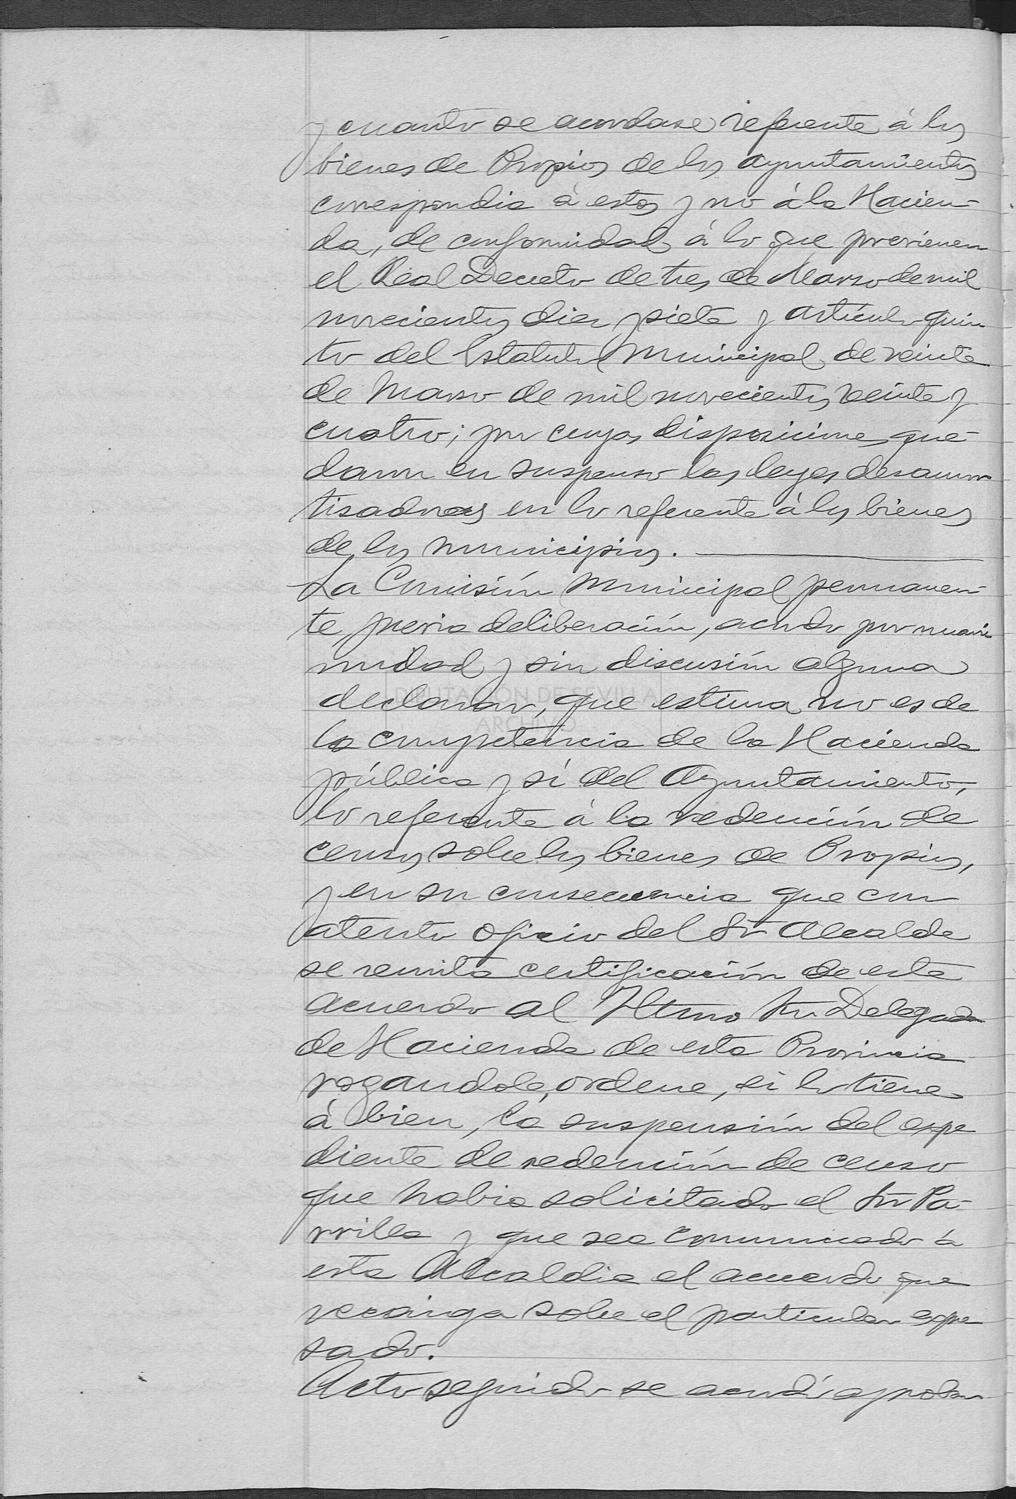 y cuanto se acordase referente á los
bienes de Propios de los ayuntamientos
correspondia á estos y no á la Hacien-
da, de conformidad á lo que previenen
el Real Decreto de tres de Marzo de mil
novecientos diez y siete y artículo quin
to del Estatuto Municipal de veinte
de Marzo de mil novecientos veinte y
cuatro; por cuyas disposiciones que-
daron en suspenso las leyes desamor
tisadoras en lo referente á los bienes
de los municipios.
La Comisión Municipal permanen-
te previa deliberación, acordo por unani
midad y sin discusión alguna
declarar, que estima no es de
la competencia de la Hacienda
pública y sí del Ayuntamiento,
lo referente á la redención de
censos sobre los bienes de Propios,
y en su consecuencia que con
atento oficio del Sr Alcalde
se remita certificación de este
acuerdo al Iltmo Sr Delegado
de Hacienda de esta Provincia
rogandole, ordene, si lo tiene
á bien, la suspensión del expe
diente de redención de censo
que habia solicitado el Sr Pa-
rrilla y que sea comunicado á
esta Alcaldia el acuerdo que
recaiga sobre el particular expre
sado.
Acto seguido se acordó aprobar
DIPUTACIÓN DE SEVILLA
ARCHIVO